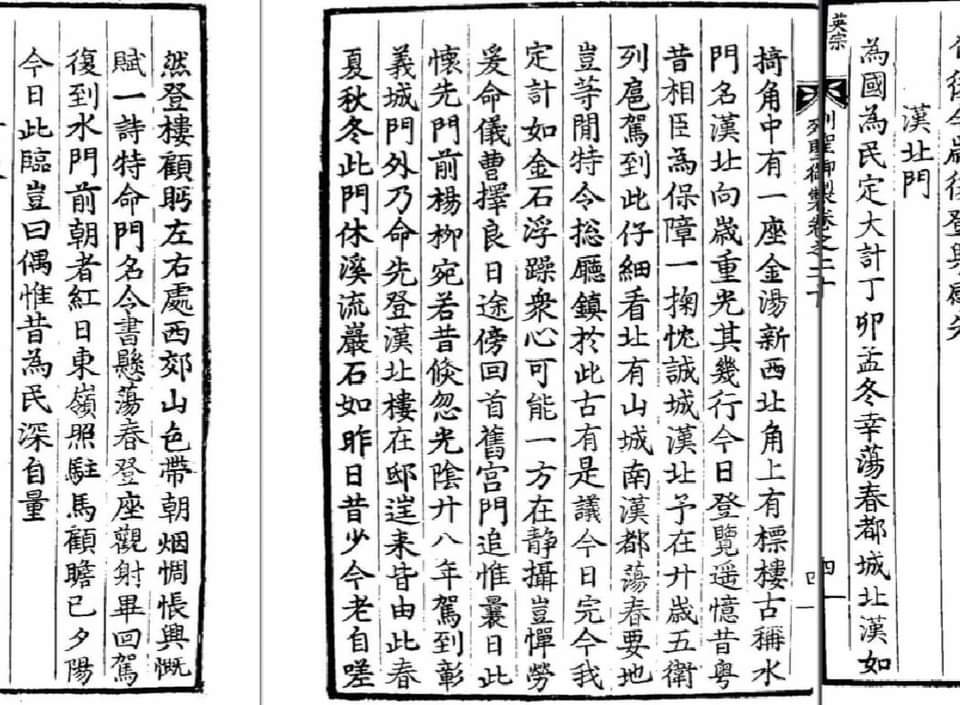 漢北門
為國為民定大計丁卯孟冬幸蕩春都城北漢如
英宗
列聖御製卷之二十
四
列聖御製卷之二十
四
掎角中有一座金湯新西北角上有標樓古稱水
門名漢北向歲重光其幾行今日登覽遥憶昔粤
昔相臣為保障一掬忱誠城漢北予在廿歲五衛
列扈駕到此仔細看北有山城南漢都蕩春要地
豈等閒特令捴廳鎮於此古有是議今日完今我
定計如金石浮躁衆心可能一方在静攝豈憚勞
爰命儀曹擇良日途傍回首舊宫門追惟曩日此
懷先門前楊柳宛若昔倏忽光陰廿八年駕到彰
義城門外乃命先登漢北樓在邸逞来皆由此春
夏秋冬此門休溪流巖石如昨日昔少今老自嗟
然登樓顧眄左右處西郊山色帶朝烟惆悵興慨
賦一詩特命門名今書懸蕩春登座觀射畢回駕
復到水門前朝者紅日東嶺照駐馬顧瞻已夕陽
今日此臨豈曰偶惟昔為民深自量